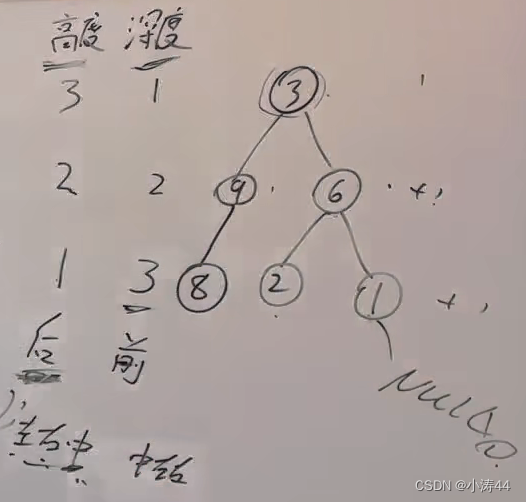 高度 深度
3 1
3
2 2 9 6
1 3 8 2 1
后 前
NULL 0
左右中 中左右
CSDN @小涛44